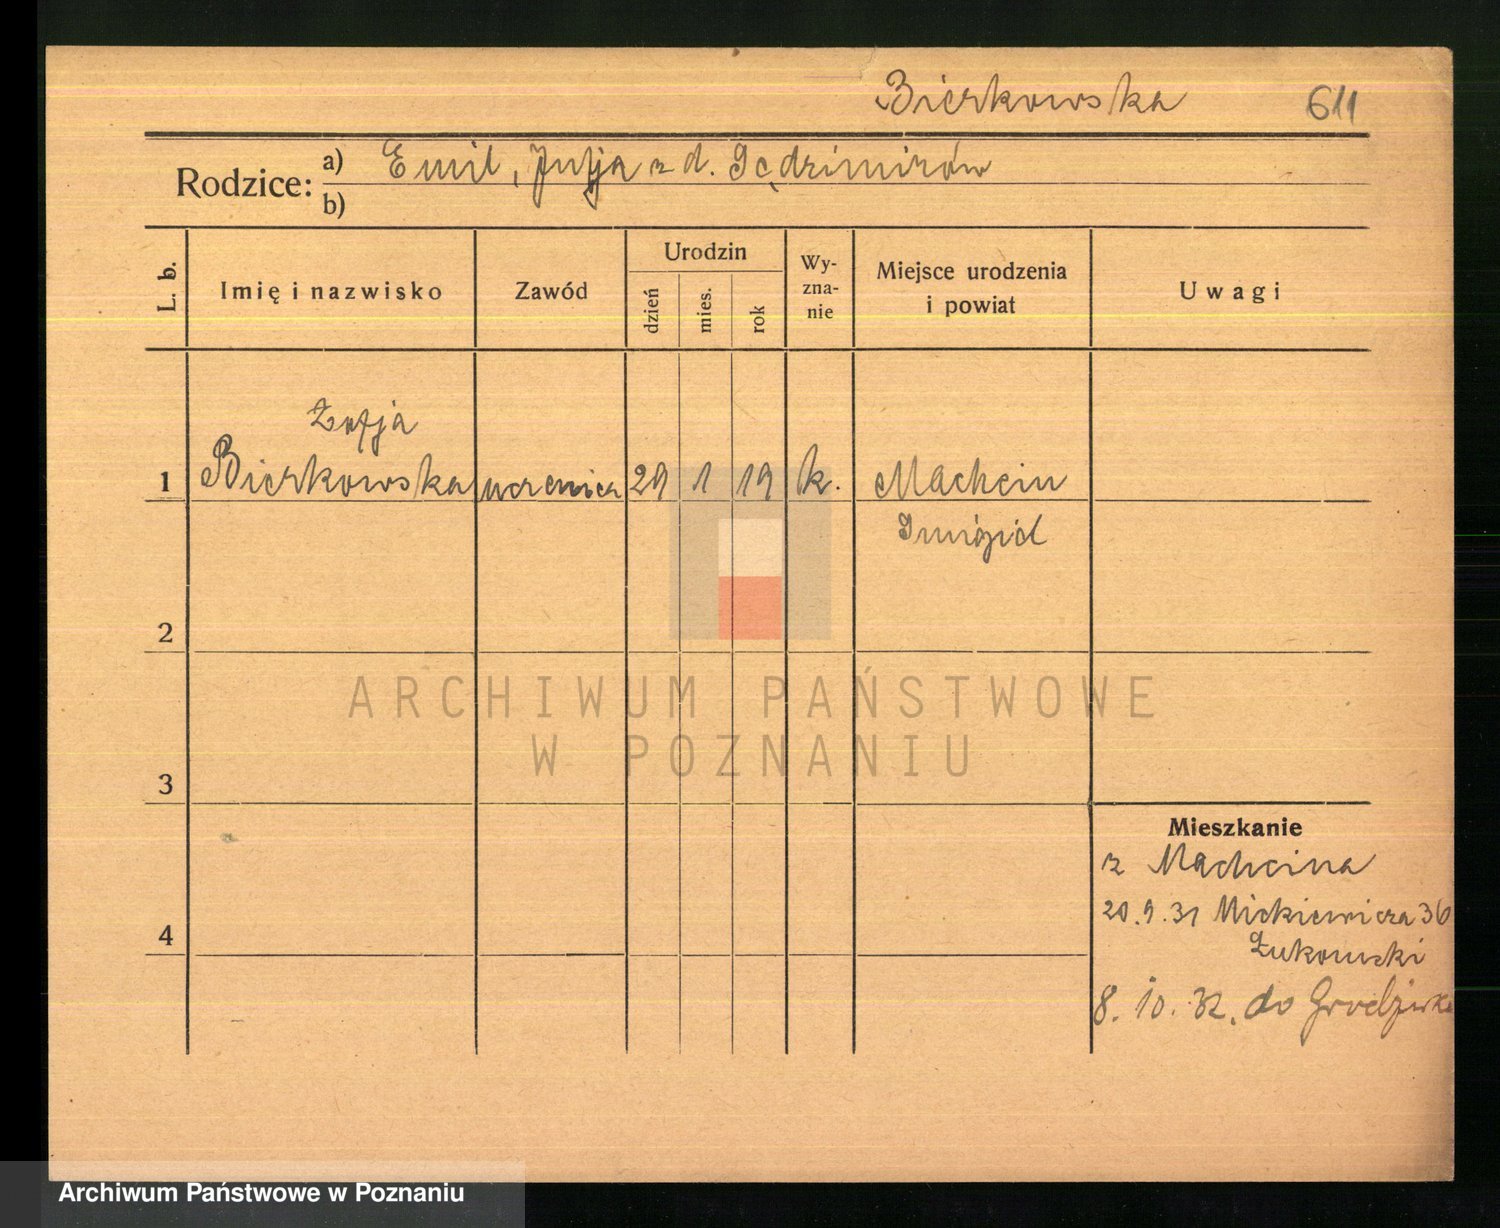 Bierkowska 611
Rodzice: a) Emil, Julja z d. Jędzimirów
b)
L. b. Imię i nazwisko Zawód Urodzin dzień mies. rok Wy-zna-nie Miejsce urodzenia i powiat Uwagi
Zofja
1 Bierkowska uczenica 29 1 19 k. Machcin
Śmigiel
2
ARCHIWUM PAŃSTWOWE
W POZNANIU
3
Mieszkanie
z Machcina
20.9.31 Mickiewicza 36
Żukowski
4
8.10.32. do Grodziska
Archiwum Państwowe w Poznaniu